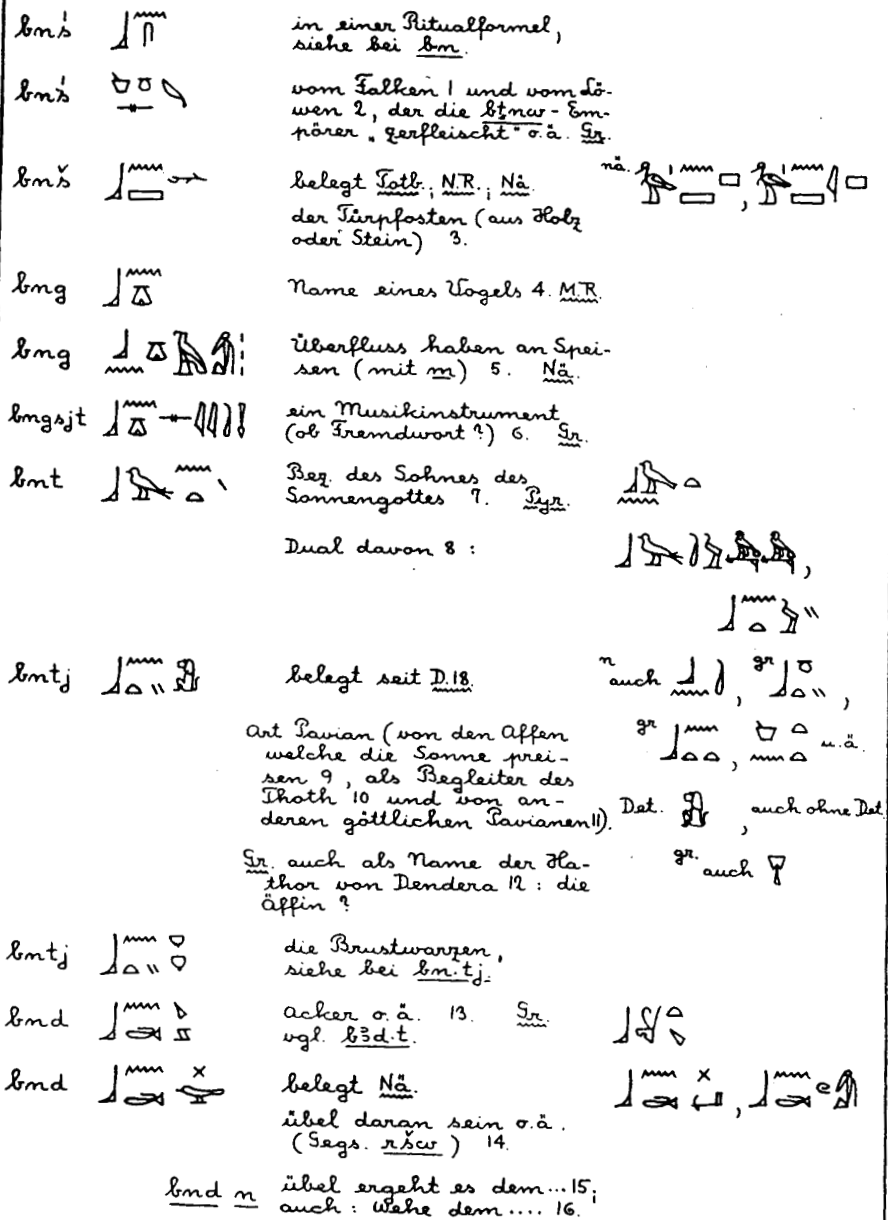 bnś in einer Ritualformel,
siehe bei bn.
bnś vom Falken 1 und vom Lö-
wen 2, der die bṯnw - Em-
pörer „zerfleischt" o.ä. Gr.
bnš belegt Totb.; N.R.; Nä. nä.
der Türpfosten (aus Holz
oder Stein) 3.
bng Name eines Vogels 4. M.R.
bng Überfluss haben an Spei-
sen (mit m) 5. Nä.
bngsjt ein Musikinstrument
(ob Fremdwort?) 6. Gr.
bnt Bez. des Sohnes des
Sonnengottes 7. Pyr.
Dual davon 8 :
bntj belegt seit D.18. n auch , gr ,
Art Pavian (von den Affen gr , u.ä.
welche die Sonne prei-
sen 9, als Begleiter des
Thoth 10 und von an- Det. , auch ohne Det.
deren göttlichen Pavianen 11).
Gr. auch als Name der Ha- gr. auch
thor von Dendera 12 : die
Äffin ?
bntj die Brustwarzen,
siehe bei bn.tj.
bnd Acker o.ä. 13. Gr.
vgl. bꜣd.t.
bnd belegt Nä.
übel daran sein o.ä.
(Gegs. ršw) 14.
bnd n übel ergeht es dem...15;
auch : Wehe dem .... 16.